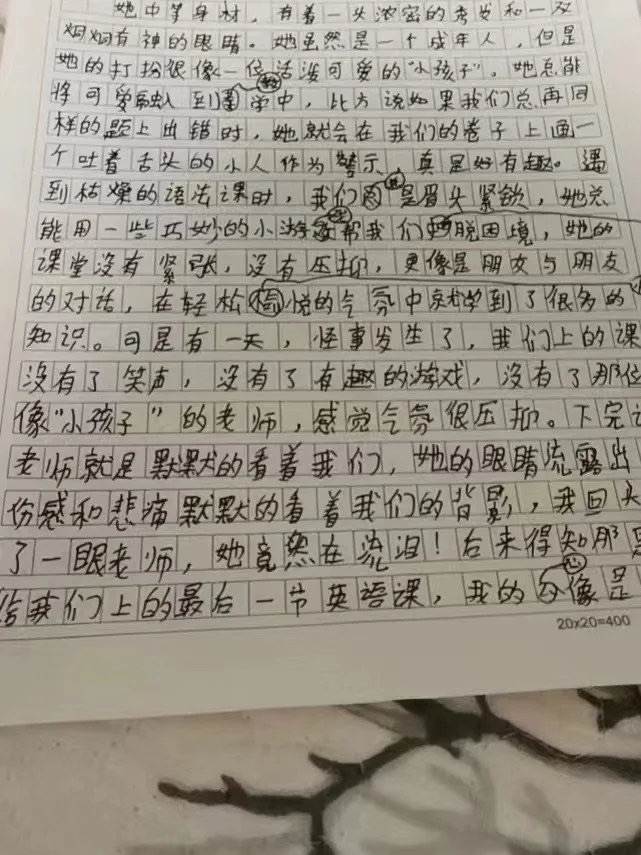 她中等身材，有着一头浓密的秀发和一双
炯炯有神的眼睛。她虽然是一个成年人，但是
她的打扮很像一位活泼可爱的“小孩子”。她总能
将可爱融入到教学中，比方说如果我们总再同
样的题上出错时，她就会在我们的卷子上画一
个吐着舌头的小人作为警示，真是好有趣。遇
到枯燥的语法课时，我们总是眉头紧锁，她总
能用一些巧妙的小游戏帮我们摆脱困境，她的
课堂没有紧张，没有压抑，更像是朋友与朋友
的对话，在轻松愉悦的气氛中就学到了很多的
知识。可是有一天，怪事发生了，我们上的课
没有了笑声，没有了有趣的游戏，没有了那位
像“小孩子”的老师，感觉气氛很压抑。下完
老师就是默默的看着我们，她的眼睛流露出
伤感和悲痛默默的看着我们的背影，我回头
了一眼老师，她竟然在流泪！后来得知那
给我们上的最后一节英语课，我的心像是
20×20=400